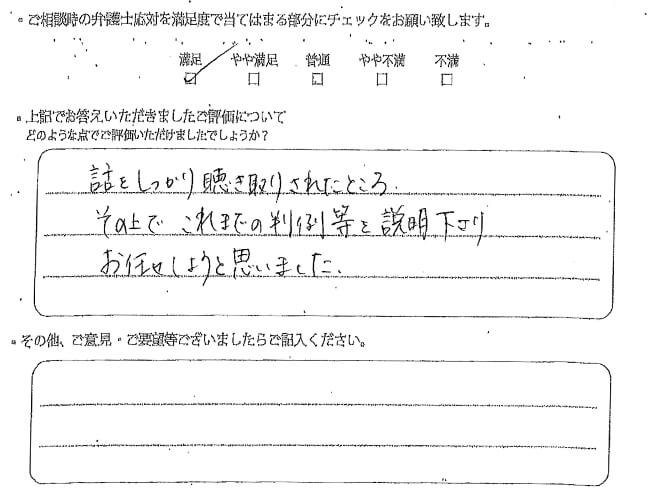 。ご相談時の弁護士応対を満足度で当てはまる部分にチェックをお願い致します。
満足 やや満足 普通 やや不満 不満
☑ □ □ □ □
。上記でお答えいただきましたご評価について
どのような点でご評価いただけましたでしょうか?
話をしっかり聴き取りされたところ.
その上で これまでの判例等を説明下さり
お任せしようと思いました.
。その他、ご意見・ご要望等ございましたらご記入ください。